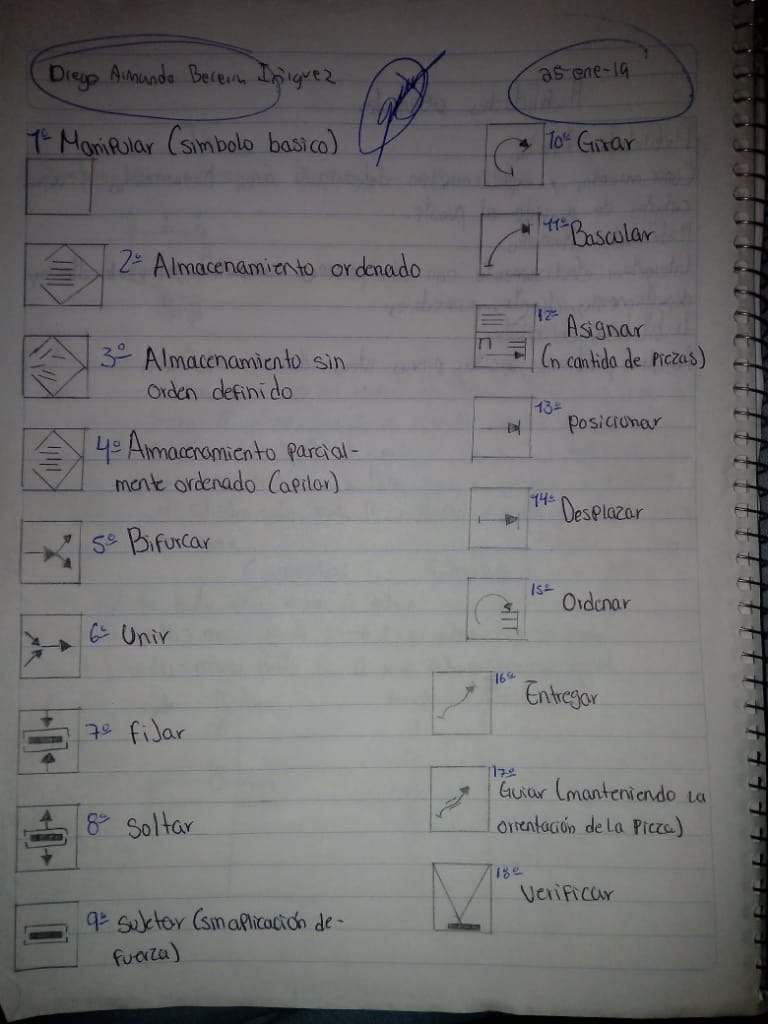 Diego Armando Becerra Iñiguez
25-ene-19
1º Manipular (simbolo basico)
2º Almacenamiento ordenado
3º Almacenamiento sin
orden definido
4º Almacenamiento parcial-
mente ordenado (apilar)
5º Bifurcar
6º Unir
7º fijar
8º Soltar
9º Sujetar (sin aplicación de-
fuerza)
10º Girar
11º Bascular
12º Asignar
(n cantida de piezas)
n
13º posicionar
14º Desplazar
15º Ordenar
16º Entregar
17º
Guiar (manteniendo la
orientación de la pieza)
18º
Verificar